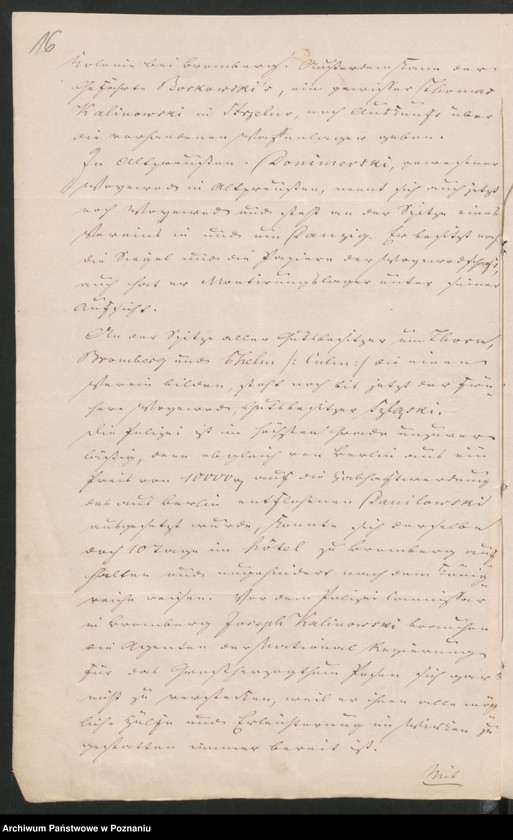 16
Kolonie bei Bromberg. Außerdem kann der
Gefährte Boskowski's, ein gewisser Thomas
Kalinowski in noch Auskunft über
die vorhandenen Waffenlager geben.
In Altpreußen - Donimerski, gewesener
Woyewode in Altpreußen, nennt sich auch jetzt
noch Woyewode und steht an der Spitze eines
Vereins in und um Danzig. Er besitzt noch
die Siegel und die Papiere der Woyewodschaft,
auch hat er Montirungslager unter seiner
Aufsicht.
An der Spitze aller Gutsbesitzer um Thorn,
Bromberg und Chelm /: Culm :/ die einen
Verein bilden, steht noch bis jetzt der frü-
here Woyewode, Gutsbesitzer
Die Polizei ist im höchsten Grade unzuver-
lässig, denn obgleich von Berlin aus ein
Preis von 10000 auf die Habhaftwerdung
des aus Berlin entflohenen Danilowski
ausgesetzt wurde, konnte sich derselbe
doch 10 Tage im Hôtel zu Bromberg auf-
halten und ungehindert nach dem König-
reiche reisen. Vor dem Polizei Commissar
in Bromberg Joseph Kalinowski brauchen
die Agenten der National Regierung
für das Großherzogthum Posen sich gar
nicht zu verstecken, weil er ihnen alle mög-
liche Hülfe und Erleichterung im Wirken zu
gestatten immer bereit ist.
Mit
Archiwum Państwowe w Poznaniu